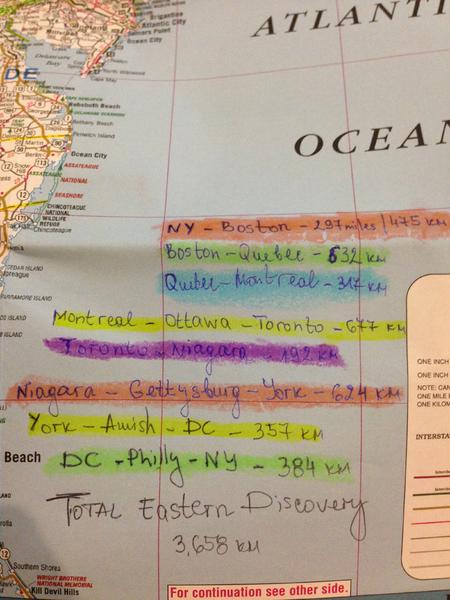 ATLANTI
Brigantine
Atlantic City
Somers Point
Ocean City
Delaware
Bay
North Wildwood
Cape May
DE
Rehoboth Beach
Bethany Beach
Fenwick Island
OCEAN
Berlin
Ocean City
ASSATEAGUE
NATIONAL
SEASHORE
CHINCOTEAGUE
NATIONAL
WILDLIFE
REFUGE
Chincoteague
NY - Boston - 297 miles / 475 KM
Boston - Quebec - 632 KM
CEDAR ISLAND
Quebec - Montreal - 317 KM
PARRAMORE ISLAND
Montreal - Ottawa - Toronto - 677 KM
Toronto - Niagara - 192 KM
ONE INCH
ONE INCH
NOTE: CAN
ONE MILE
ONE KILOM
Niagara - Gettysburg - York - 624 KM
York - Amish - DC - 357 KM
INTERSTA
Beach
DC - Philly - NY - 384 KM
TOTAL Eastern Discovery
3,658 KM
Southern Shores
WRIGHT BROTHERS
NATIONAL MEMORIAL
Kill Devil Hills
For continuation see other side.